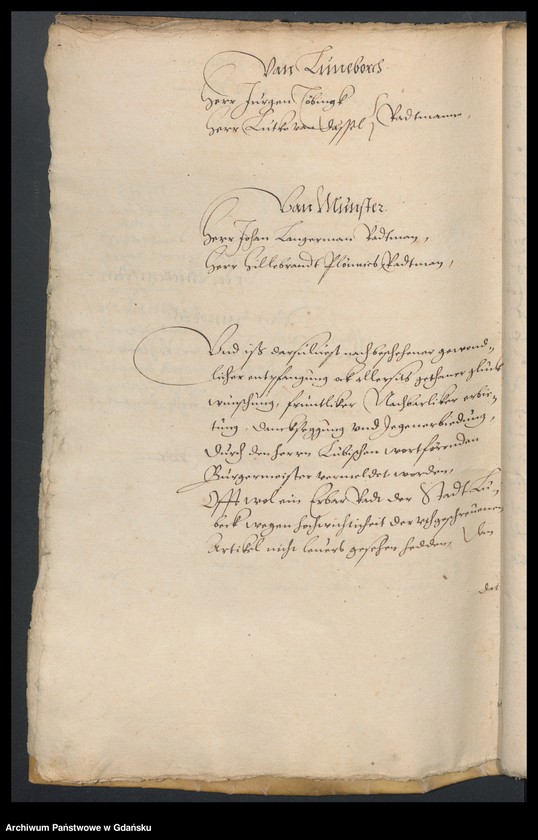 Van Luneborch
Herr Jurgen Töbingk
Herr Lutke van Dassel Radtmanne,
Van Munster.
Herr Johan Langerman Radtman,
Herr Hillebrandt Plönnies Radtman,
Vnd iß darsuluest nach beschehener gewond-
licher entpfangung ock allersidts gethaner gluck
wunschung, fruntliker Nachbarliker erbie-
tung, dancksegung vnd Jegenerbiedung,
Durch den herrn Lubischen wortförenden
Burgermeister vermeldet worden,
Offt wol ein Erbar Radt der Stadt Lu-
beck wegen hochwichticheit der vthgeschreuenen
Artikel nicht leuers gesehen hedden,
dat
Archiwum Państwowe w Gdańsku